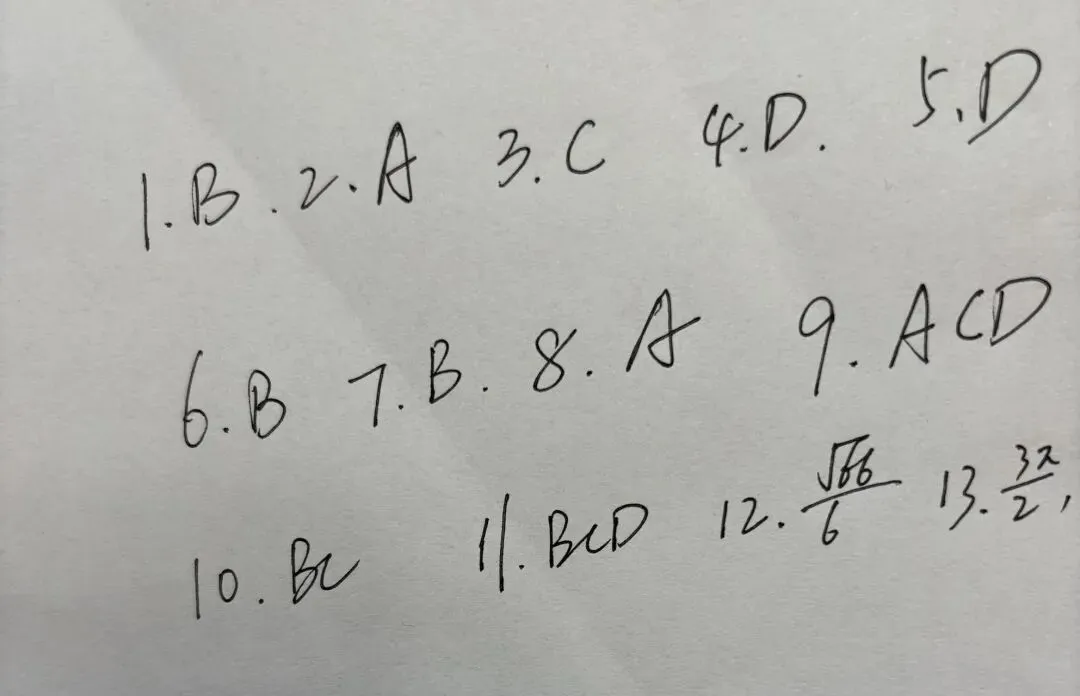 1.B. 2.A 3.C 4.D. 5.D
6.B 7.B. 8.A 9.ACD
10.BC 11.BCD 12.√66/6 13.3π/2,